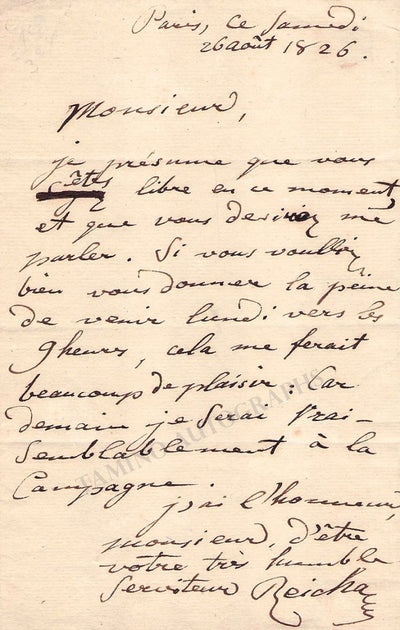 Paris, ce Samedi
26 août 1826.
Monsieur,
je présume que vous
êtes libre en ce moment,
et que vous desiriez me
parler. Si vous voulliez
bien vous donner la peine
de venir lundi vers les
9 heures, cela me ferait
beaucoup de plaisir. Car
demain je serai vrai-
semblablement à la
Campagne.
j'ai l'honneur,
monsieur, d'être
votre très humble
Serviteur Reicha
TAMINO AUTOGRAPHS